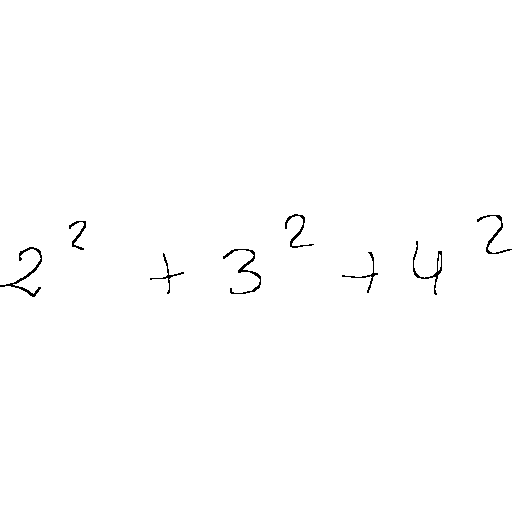 2² + 3² + 4²